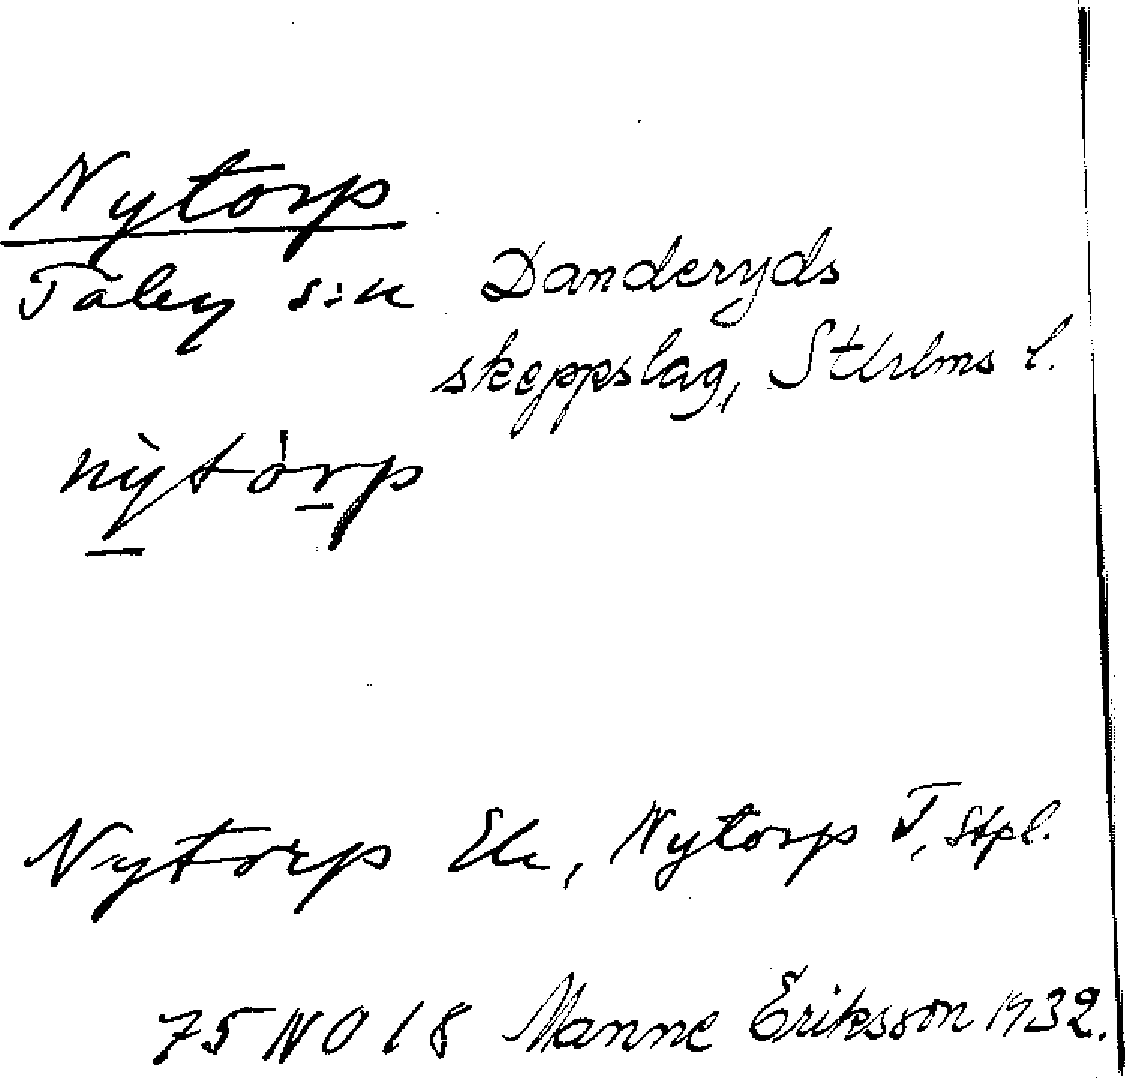 Nytorp
Täby s:n Danderyds
skeppslag, Sthlms l.
nỳtórp
Nytorp Ek, Nytorp T, Stpl.
75 NO 18 Manne Eriksson 1932.